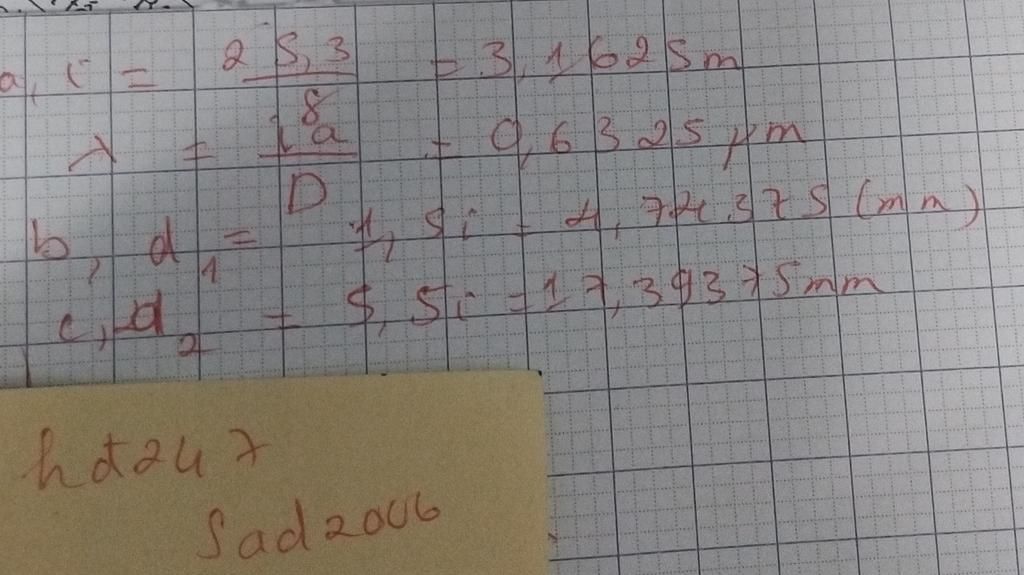 a, i = 25,3/8 = 3,1625m
λ = ia/D = 0,6325 μm
b, d₁ = 1,5i = 4,74375 (mm)
c, d₂ = 5,5i = 17,39375mm
hdt247
Sad2006